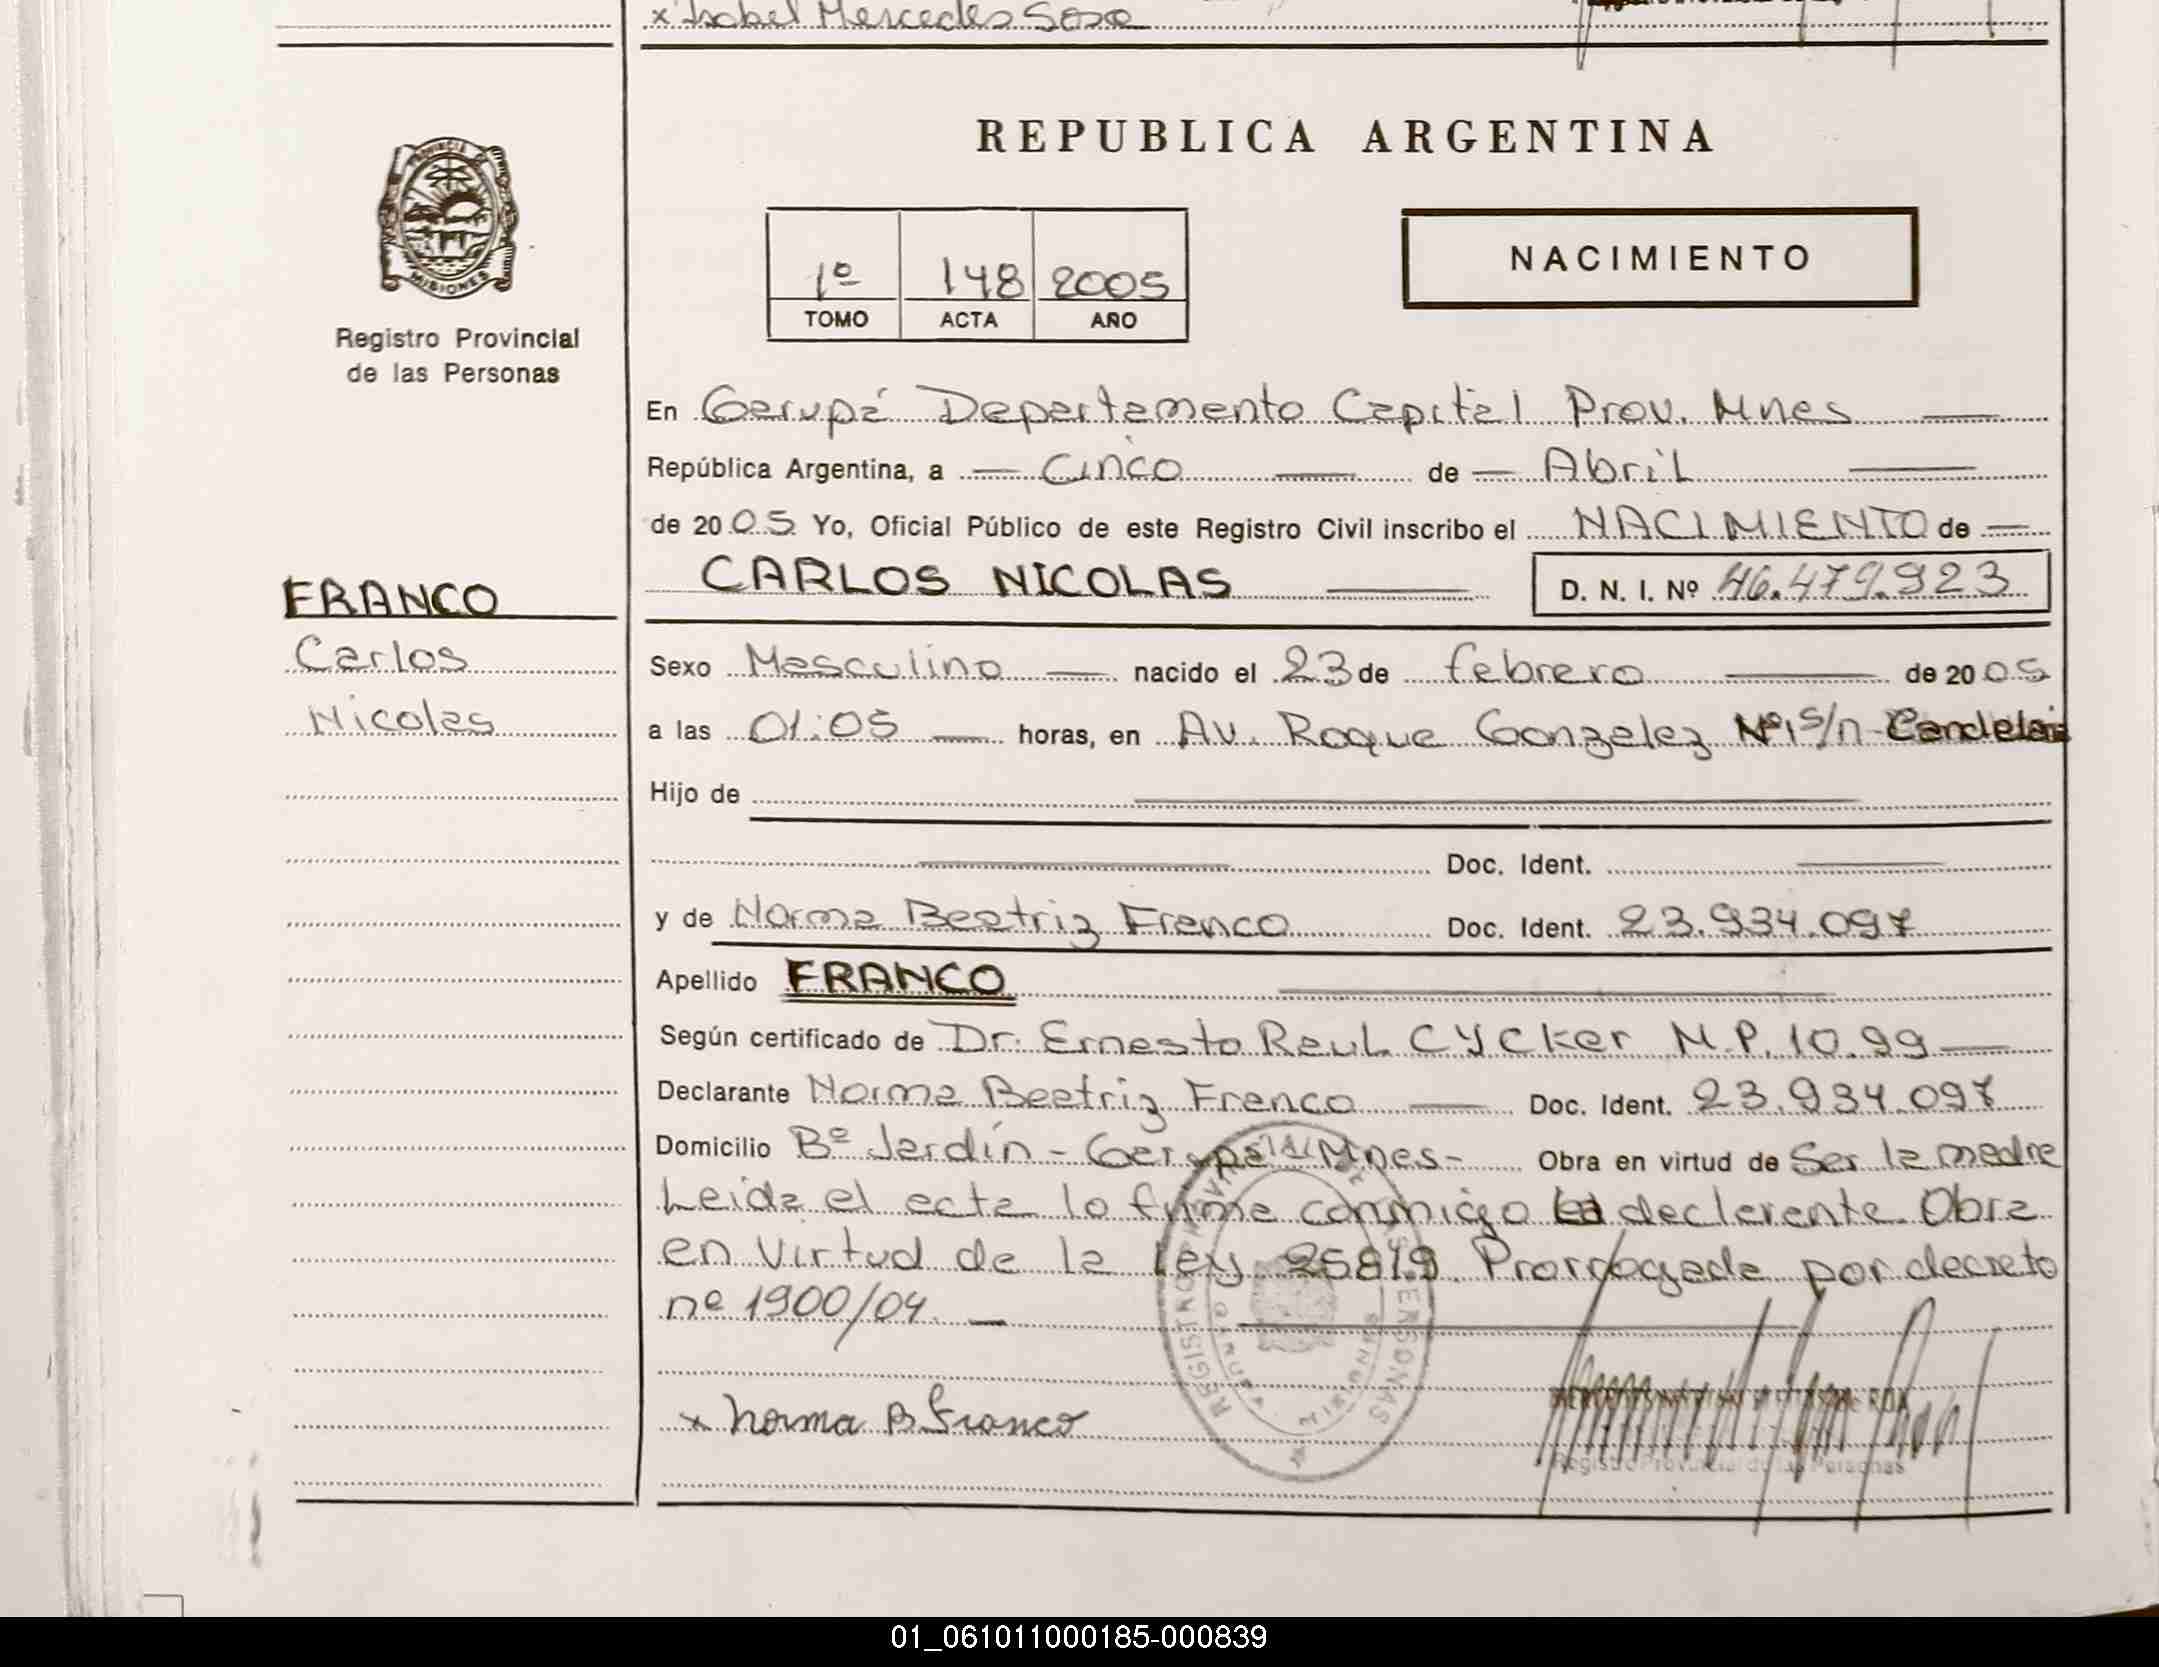 x Isabel Mercedes Sosa
REPUBLICA ARGENTINA
PROVINCIA DE
MISIONES
Registro Provincial
de las Personas
1º 148 2005
TOMO ACTA AÑO
NACIMIENTO
En Garupá Departamento Capital Prov. Mnes
República Argentina, a Cinco de Abril
de 2005 Yo, Oficial Público de este Registro Civil inscribo el NACIMIENTO de
CARLOS NICOLAS D. N. I. Nº 46.479.923
FRANCO
Carlos
Nicolas
Sexo Masculino nacido el 23 de febrero de 2005
a las 01:05 horas, en Av. Roque Gonzalez Nº s/n - Candelaria
Hijo de
Doc. Ident.
y de Norma Beatriz Franco Doc. Ident. 23.934.097
Apellido FRANCO
Según certificado de Dr. Ernesto Raul CYCKer M.P. 10.99
Declarante Norma Beatriz Franco Doc. Ident. 23.934.097
Domicilio Bº Jardín - Garupa Mnes - Obra en virtud de Ser la madre
Leida el acta lo firma conmigo la declarante. Obra
en virtud de la ley 25819. Prorrogada por decreto
nº 1900/04.
x Norma B. Franco
REGISTRO PROVINCIAL DE LAS PERSONAS
GARUPA
MISIONES
Registro Provincial de las Personas
01_061011000185-000839